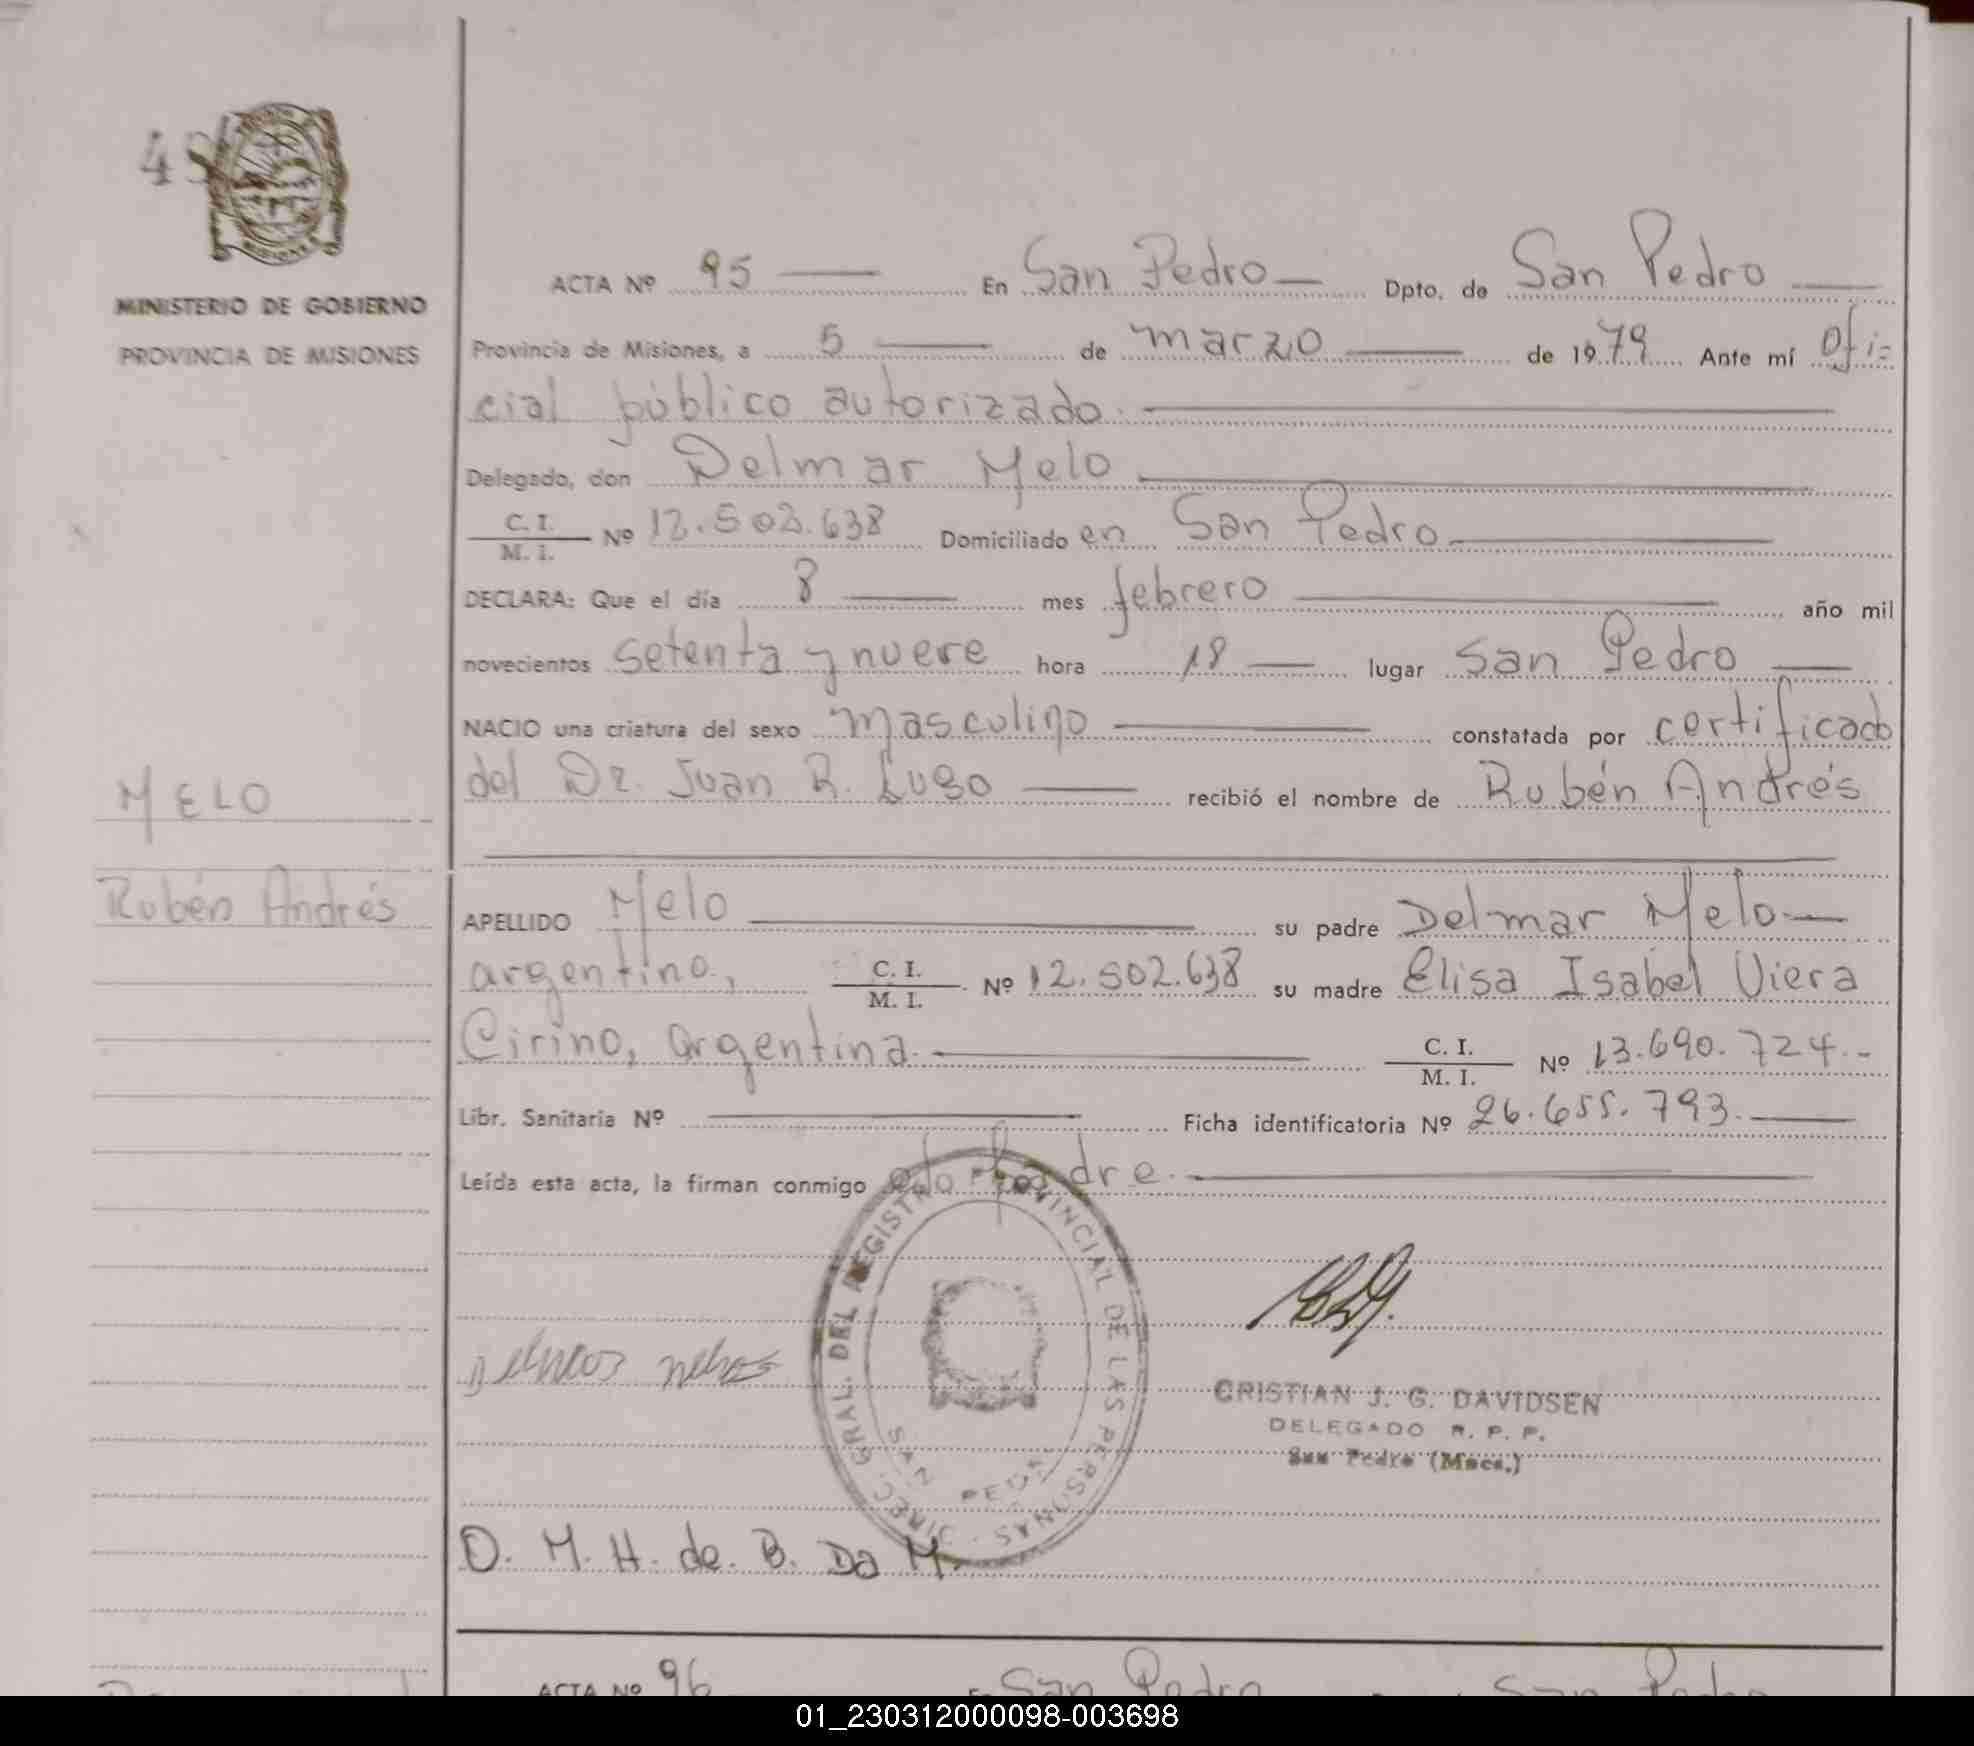 48
MISIONES
MINISTERIO DE GOBIERNO
PROVINCIA DE MISIONES
ACTA Nº 95 En San Pedro Dpto. de San Pedro
Provincia de Misiones, a 5 de marzo de 1979 Ante mí Ofi=
cial público autorizado.
Delegado, don Delmar Melo
C. I.
M. I. Nº 12.502.638 Domiciliado en San Pedro
DECLARA: Que el día 8 mes febrero año mil
novecientos setenta y nueve hora 18 lugar San Pedro
NACIO una criatura del sexo masculino constatada por certificado
del Dr. Juan R. Lugo recibió el nombre de Rubén Andrés
MELO
Rubén Andrés
APELLIDO Melo su padre Delmar Melo
argentino, C. I.
M. I. Nº 12.502.638 su madre Elisa Isabel Viera
Cirino, argentina. C. I.
M. I. Nº 13.690.724.-
Libr. Sanitaria Nº Ficha identificatoria Nº 26.655.793.
Leída esta acta, la firman conmigo el padre.
DIREC. GRAL. DEL REGISTRO PROVINCIAL DE LAS PERSONAS
SAN PEDRO
CRISTIAN J. G. DAVIDSEN
DELEGADO R. P. P.
San Pedro (Mnes.)
O. M. H. de. B. Da M.
ACTA Nº 96 En San Pedro San Pedro
01_230312000098-003698